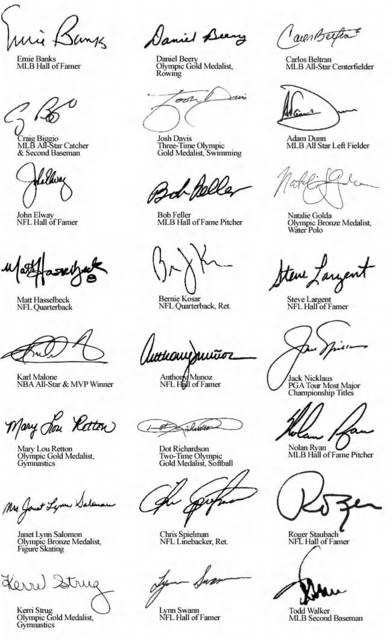 Ernie Banks
Ernie Banks
MLB Hall of Famer
Daniel Beery
Daniel Beery
Olympic Gold Medalist,
Rowing
Carlos Beltran
Carlos Beltran
MLB All-Star Centerfielder
Craig Biggio
MLB All-Star Catcher
& Second Baseman
Josh Davis
Josh Davis
Three-Time Olympic
Gold Medalist, Swimming
Adam Dunn
MLB All Star Left Fielder
John Elway
John Elway
NFL Hall of Famer
Bob Feller
Bob Feller
MLB Hall of Fame Pitcher
Natalie Golda
Natalie Golda
Olympic Bronze Medalist,
Water Polo
Matt Hasselbeck 8
Matt Hasselbeck
NFL Quarterback
Bernie Kosar
NFL Quarterback, Ret.
Steve Largent
Steve Largent
NFL Hall of Famer
Karl Malone
NBA All-Star & MVP Winner
Anthony Muñoz
Anthony Munoz
NFL Hall of Famer
Jack Nicklaus
PGA Tour Most Major
Championship Titles
Mary Lou Retton
Mary Lou Retton
Olympic Gold Medalist,
Gymnastics
Dot Richardson
Two-Time Olympic
Gold Medalist, Softball
Nolan Ryan
Nolan Ryan
MLB Hall of Fame Pitcher
Mrs Janet Lynn Salomon
Janet Lynn Salomon
Olympic Bronze Medalist,
Figure Skating
Chris Spielman
Chris Spielman
NFL Linebacker, Ret.
Roger
Roger Staubach
NFL Hall of Famer
Kerri Strug
Kerri Strug
Olympic Gold Medalist,
Gymnastics
Lynn Swann
Lynn Swann
NFL Hall of Famer
Todd Walker
MLB Second Baseman